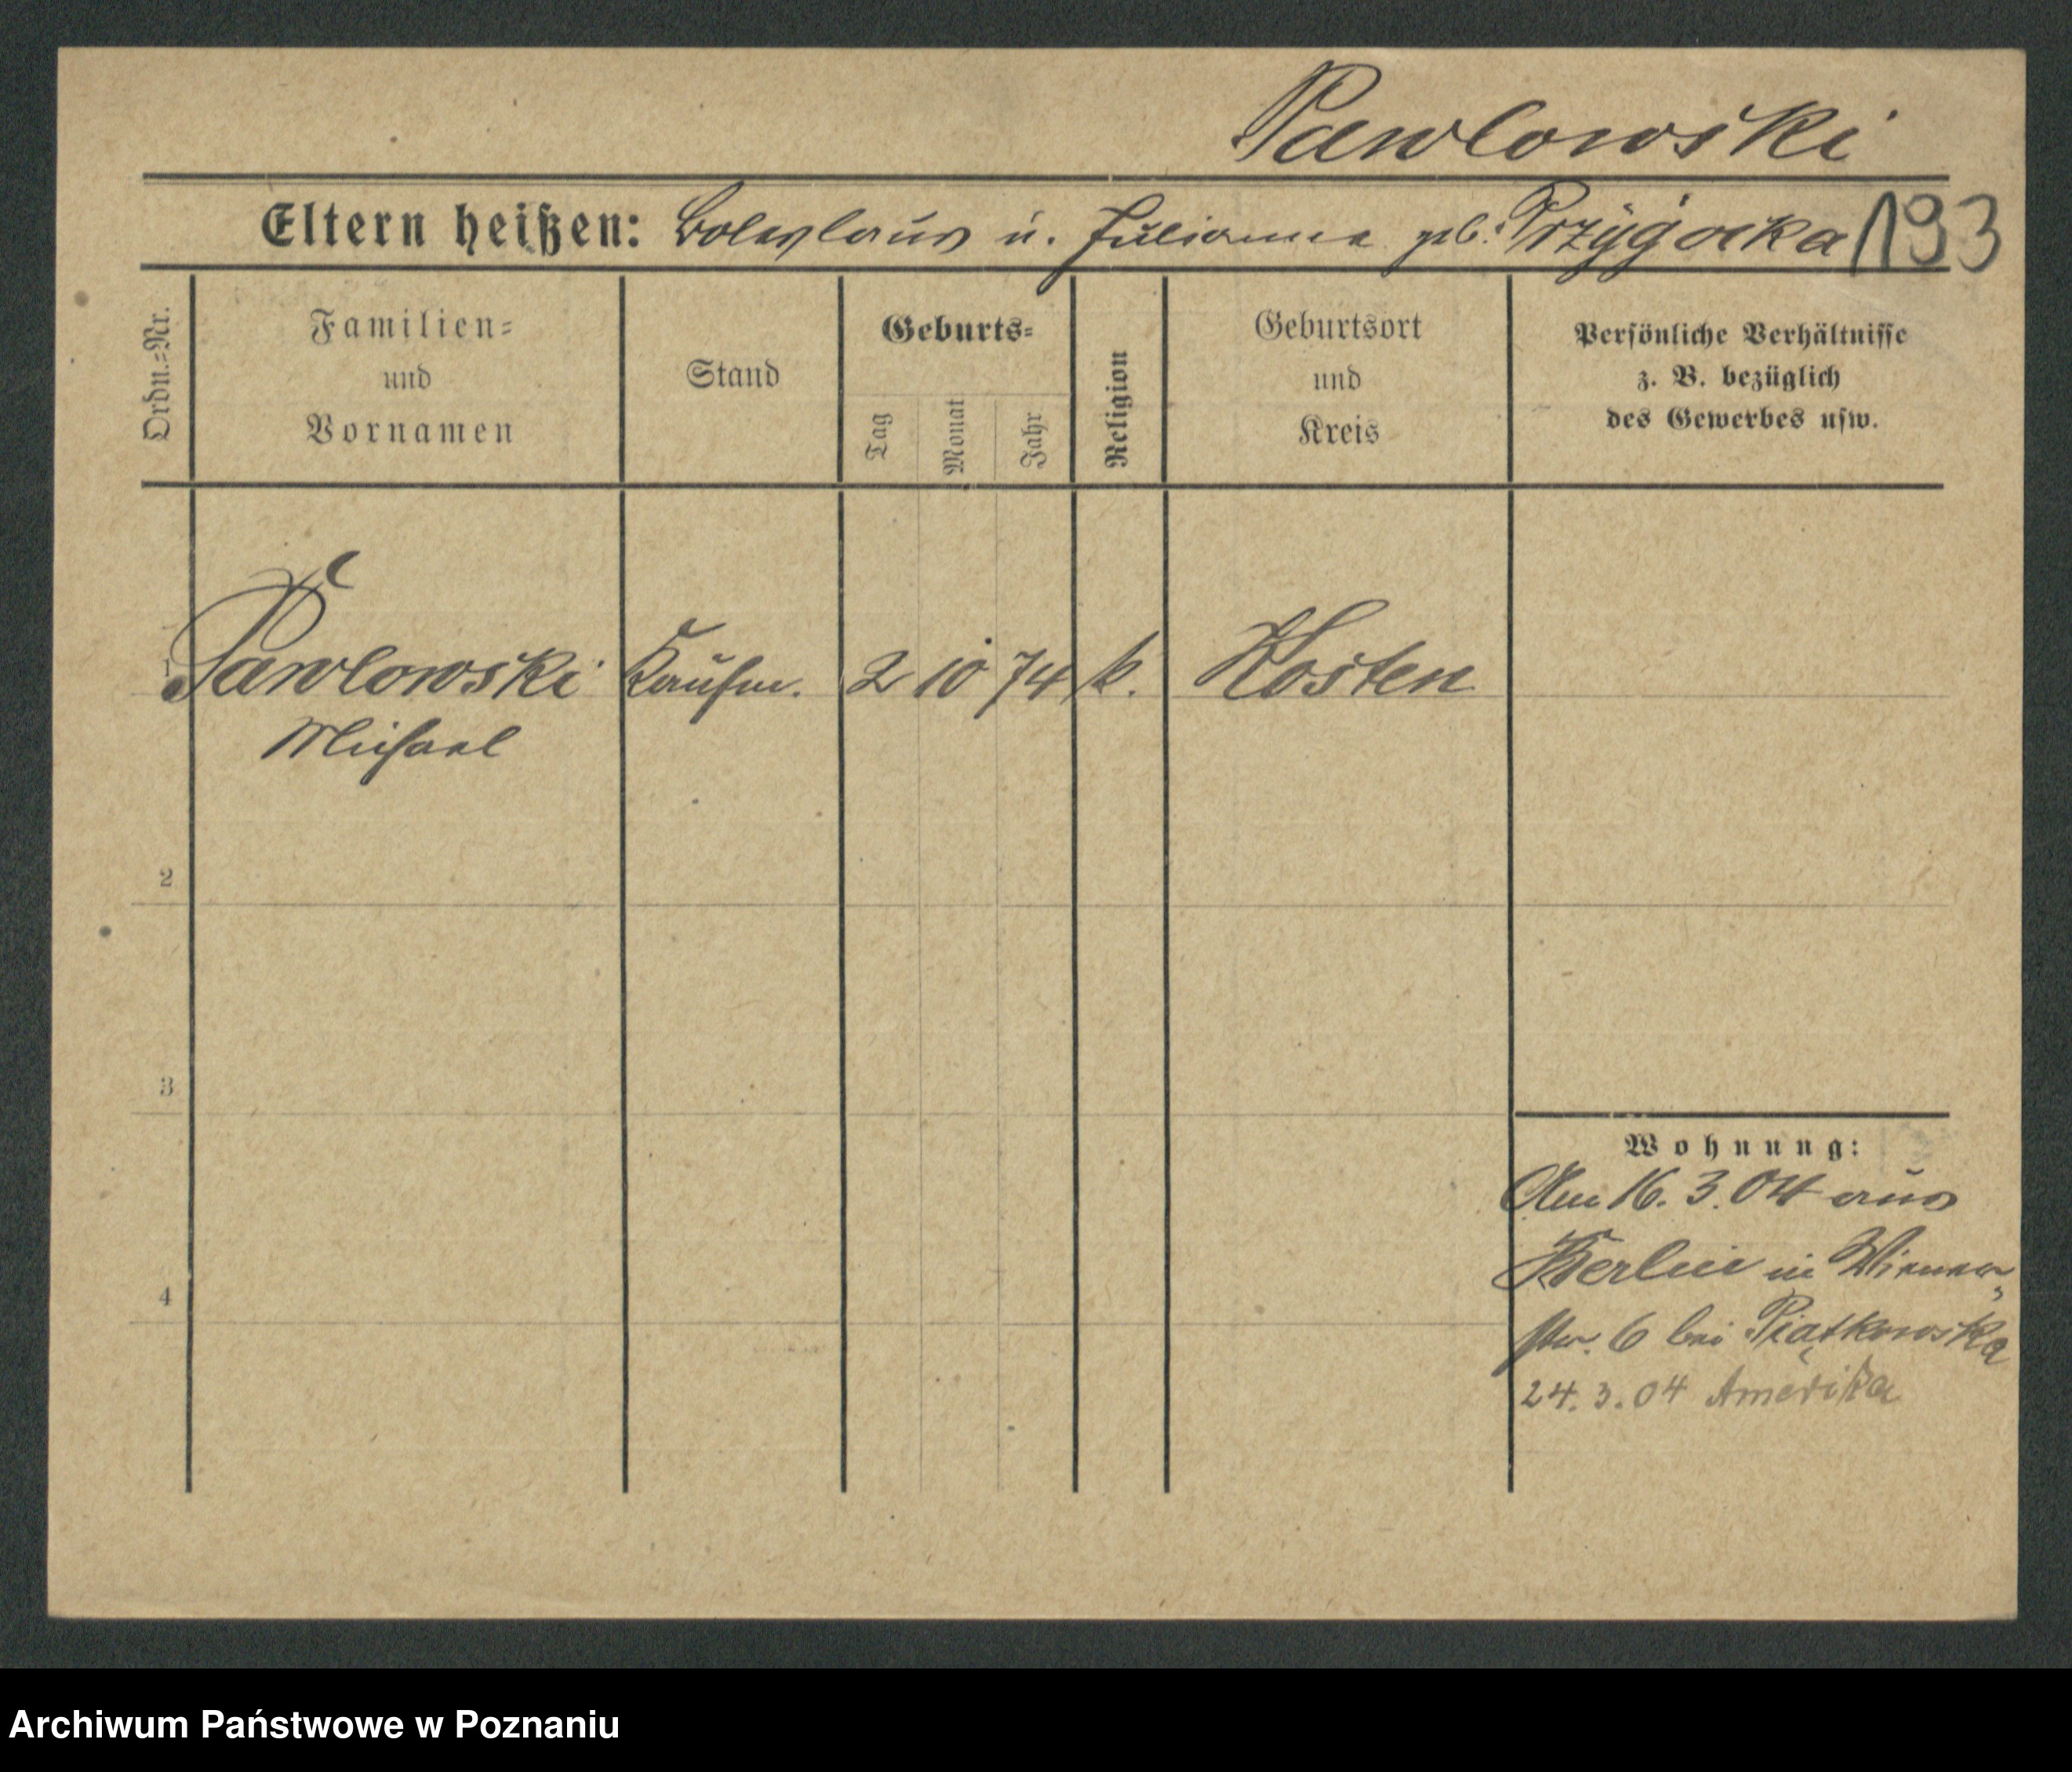 Pawlowski
Eltern heißen: Boleslaus u. Julianna geb. Przygocka 193
Ordn.=Nr.
Familien=
und
Vornamen
Stand
Geburts=
Tag
Monat
Jahr
Religion
Geburtsort
und
Kreis
Persönliche Verhältnisse
z. B. bezüglich
des Gewerbes usw.
1 Pawlowski Kaufm. 2 10 74 k. Kosten
Michael
2
3
4
Wohnung:
Am 16. 3. 04 aus
Berlin in Wiener-
str. 6 bei Piątkowska
24. 3. 04 Amerika
Archiwum Państwowe w Poznaniu